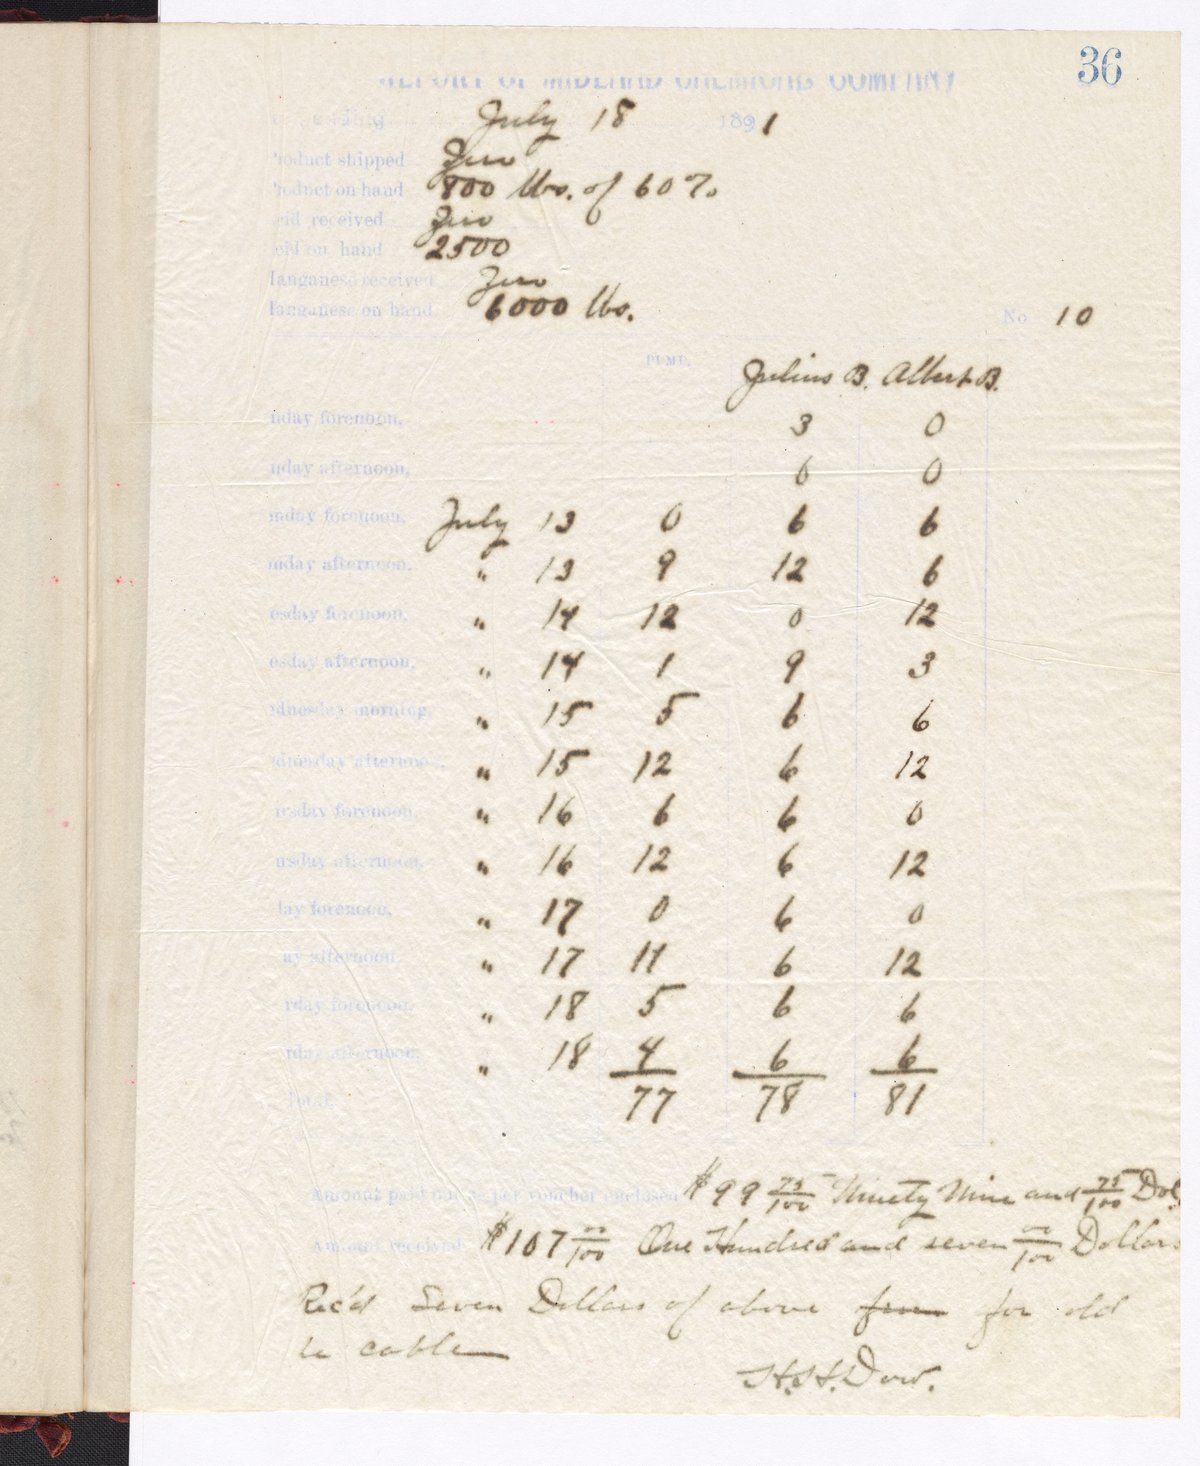 36
REPORT OF MIDLAND CHEMICAL COMPANY
July 18 1891
Product shipped Zero
Product on hand 800 lbs. of 60%
cid received Zero
cid on hand 2500
Manganese received Zero
Manganese on hand 6000 lbs.
No 10
PUMP. Julius B. Albert B.
nday forenoon, 3 0
nday afternoon, 6 0
onday forenoon, July 13 0 6 6
onday afternoon, " 13 9 12 6
esday forenoon, " 14 12 0 12
esday afternoon, " 14 1 9 3
dnesday morning, " 15 5 6 6
dnesday afternoon, " 15 12 6 12
ursday forenoon, " 16 6 6 0
ursday afternoon, " 16 12 6 12
day forenoon, " 17 0 6 0
ay afternoon " 17 11 6 12
rday forenoon, " 18 5 6 6
rday afternoon, " 18 4 6 6
Total 77 78 81
Amount paid out as per voucher enclosed $99 75/100 Ninety Nine and 75/100 Dol
Amount received $107 00/100 One Hundred and seven 00/100 Dollars
Rec'd Seven Dollars of above from for old
cable
H.H. Dow.